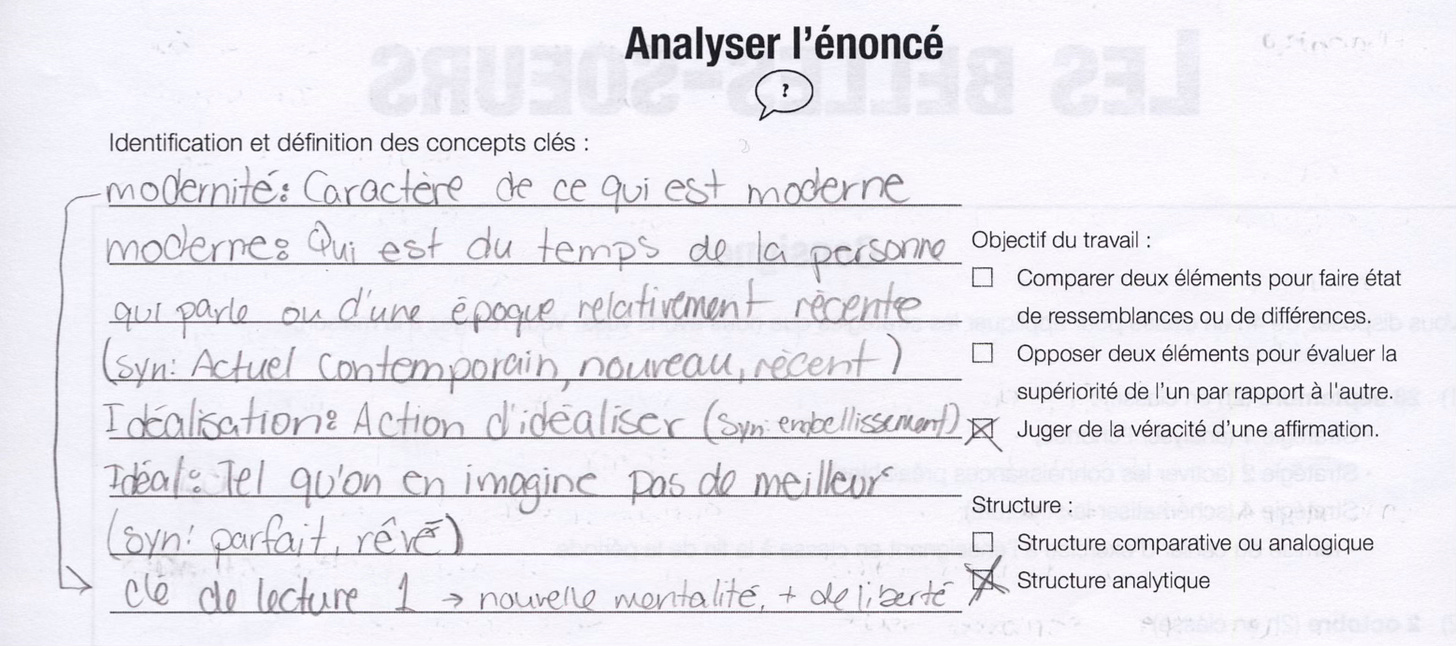 Analyser l'énoncé
?
Identification et définition des concepts clés :
modernité: Caractère de ce qui est moderne
moderne: Qui est du temps de la personne
qui parle ou d'une époque relativement récente
(syn: Actuel contemporain, nouveau, récent)
Idéalisation: Action d'idéaliser (syn: embellissement)
Idéal: Tel qu'on en imagine pas de meilleur
(syn: parfait, rêvé)
clé de lecture 1 → nouvelle mentalité, + de liberté
Objectif du travail :
☐ Comparer deux éléments pour faire état
de ressemblances ou de différences.
☐ Opposer deux éléments pour évaluer la
supériorité de l'un par rapport à l'autre.
☒ Juger de la véracité d'une affirmation.
Structure :
☐ Structure comparative ou analogique
☒ Structure analytique
LES BELLES-SOEURS